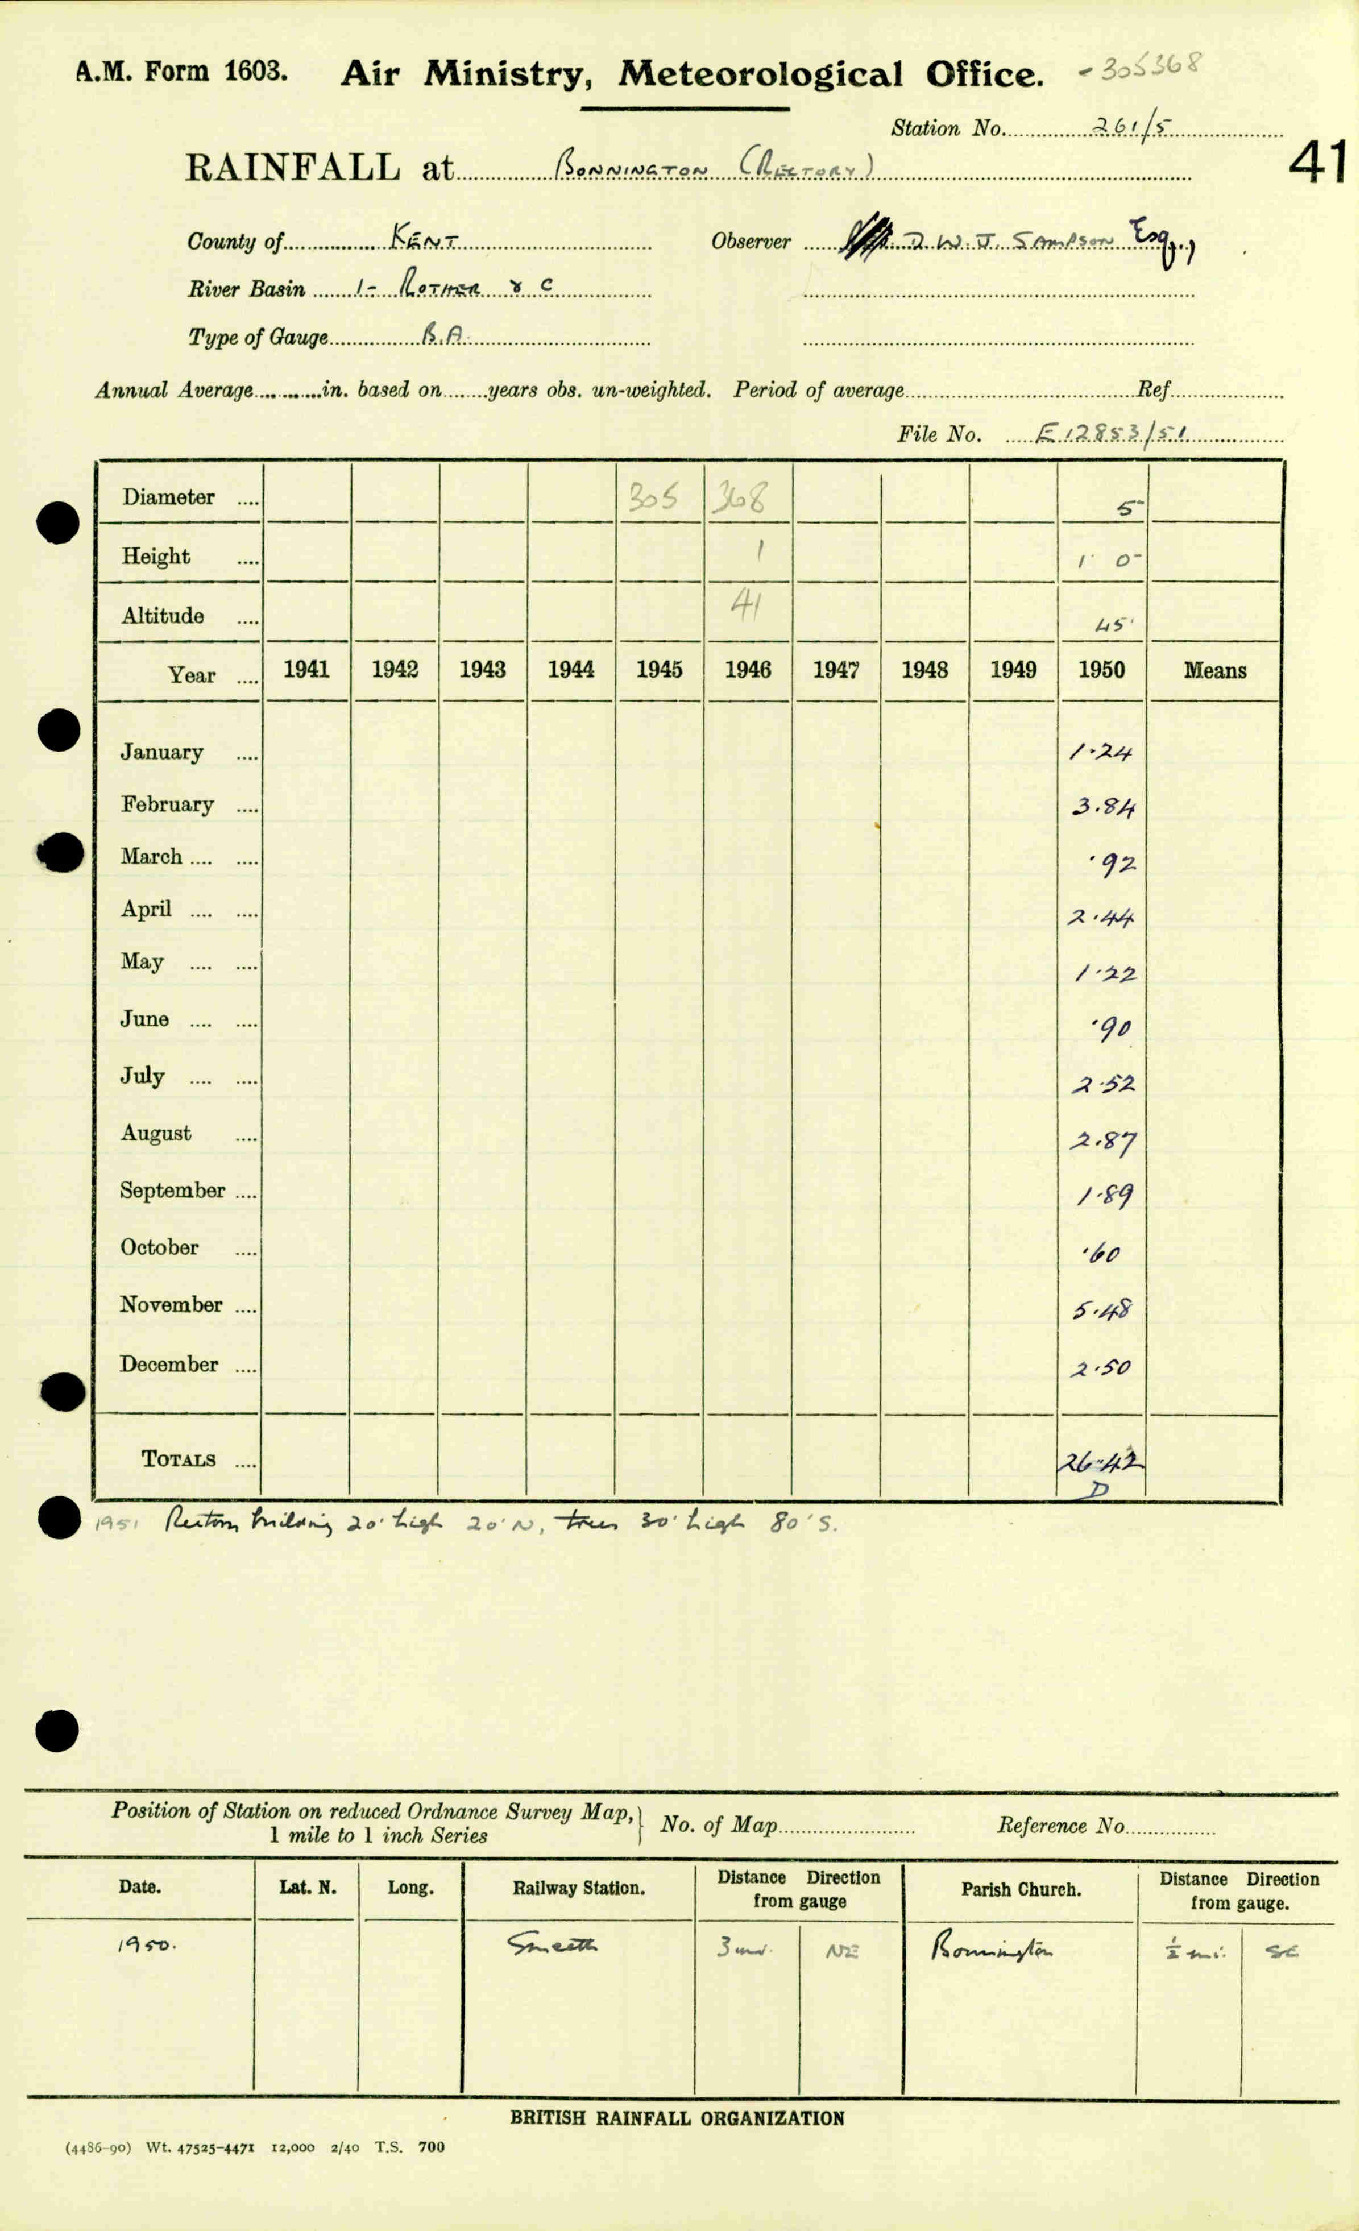 A.M. Form 1603. Air Ministry, Meteorological Office. - 305368
Station No. 261/5
41
RAINFALL at BONNINGTON (RECTORY)
County of KENT Observer D. W. J. SAMPSON Esq.,
River Basin 1 - ROTHER & C
Type of Gauge B.A.
Annual Average in. based on years obs. un-weighted. Period of average Ref.
File No. E 12853/51
Diameter .... 305 368 5
Height .... 1 1 0
Altitude .... 41 45
Year .... 1941 1942 1943 1944 1945 1946 1947 1948 1949 1950 Means
January .... 1.24
February .... 3.84
March .... .... .92
April .... .... 2.44
May .... .... 1.22
June .... .... .90
July .... .... 2.52
August .... 2.87
September .... 1.89
October .... .60
November .... 5.48
December .... 2.50
TOTALS .... 26.42
D
1951 Rectory building 20' high 20' N, trees 30' high 80' S.
Position of Station on reduced Ordnance Survey Map, No. of Map Reference No.
1 mile to 1 inch Series
Date. Lat. N. Long. Railway Station. Distance Direction from gauge Parish Church. Distance Direction from gauge.
1950. Smeeth 3 mi. NE Bonnington ½ mi. SE
BRITISH RAINFALL ORGANIZATION
(4486-90) Wt. 47525-4471 12,000 2/40 T.S. 700